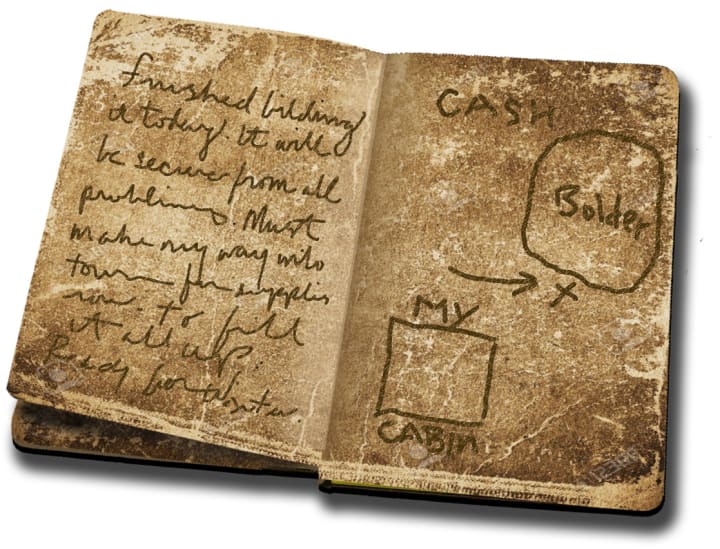 finished bilding
it today. It will
be secure from all
problims. Must
make my way into
town for supplies
now. to fill
it all up.
Ready for Winter.
CASH
Bolder
X
MY
CABIN